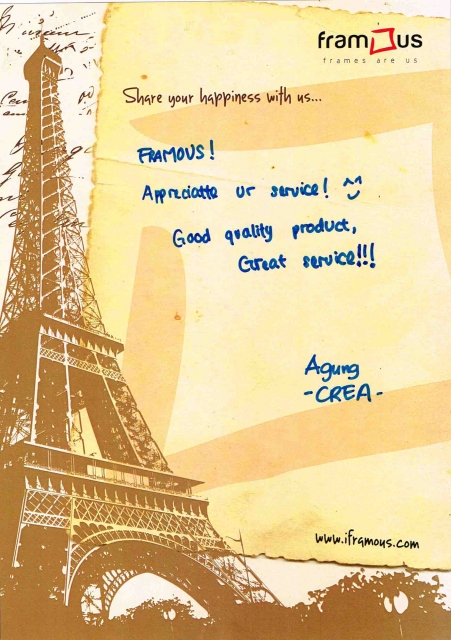 framous
frames are us
Share your happiness with us...
FRAMOUS!
Appreciatte ur service! ^^
Good quality product,
Great service!!!
Agung
-CREA-
www.iframous.com